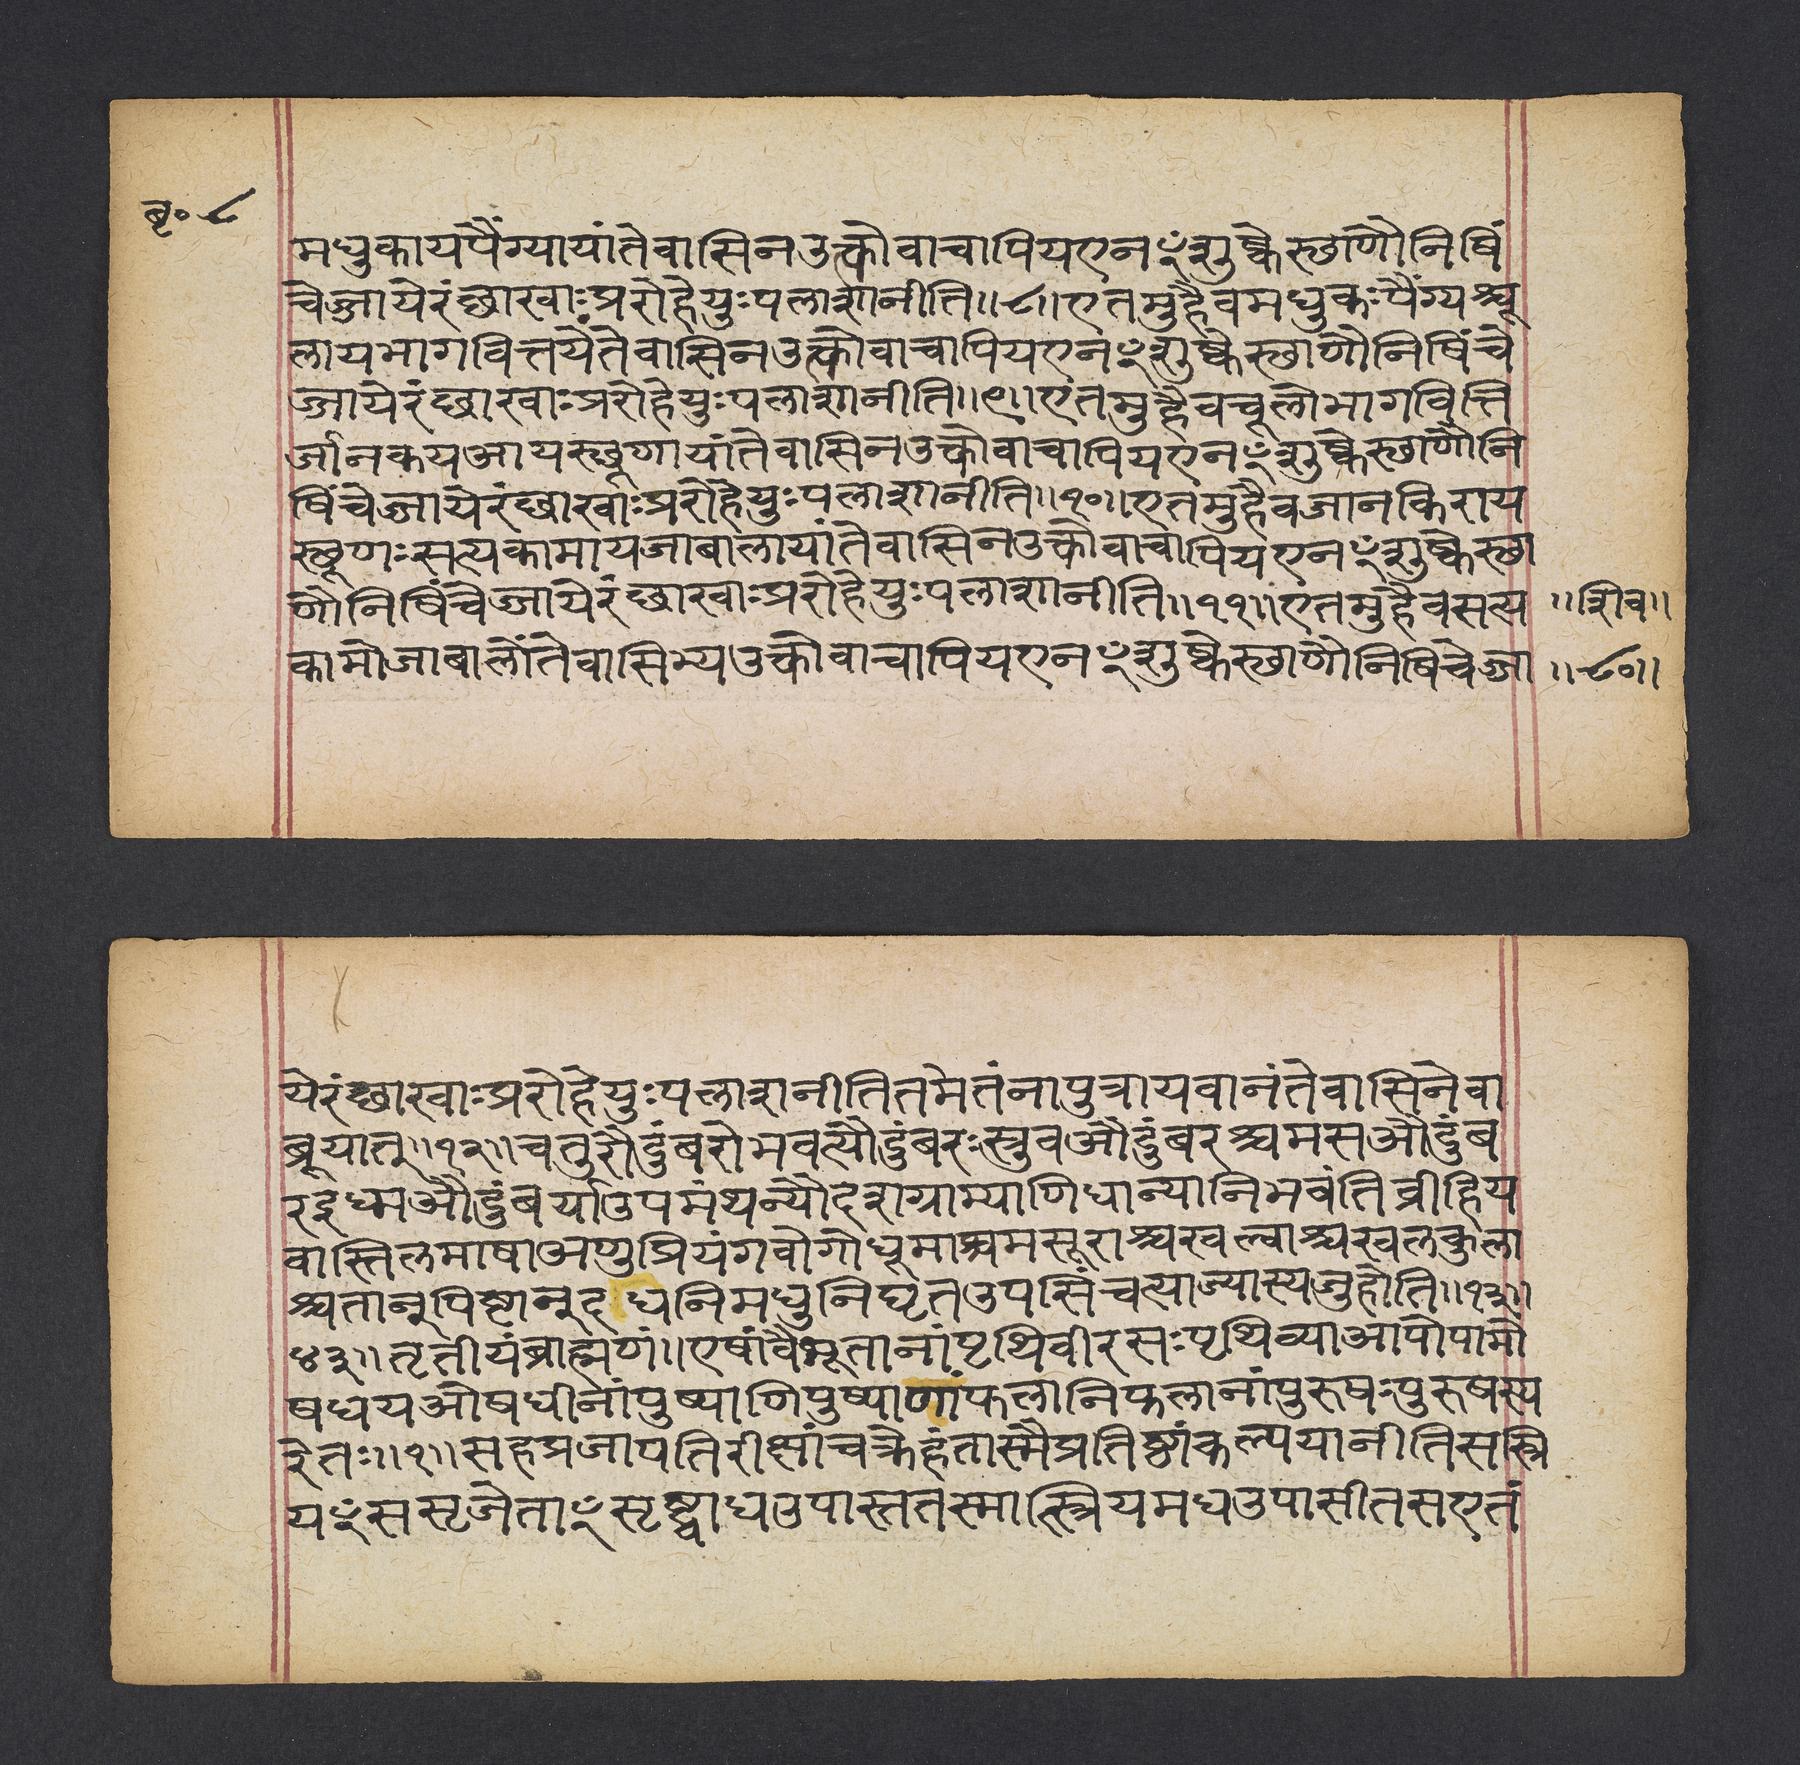 बृ॰ ८
मधुकायपैंग्यायांतेवासिनउत्कोवाचापियएनꣳशुष्केस्छाणौनिषिं
चेज्जायेरंछाखाःप्ररोहेयुःपलाशानीति॥८॥एतमुहैवमधुकःपैंग्यश्चू
लायभागवित्तयेंतेवासिनउत्कोवाचापियएनꣳशुष्केस्छाणौनिषिंचे
ज्जायेरंछाखाःप्ररोहेयुःपलाशानीति॥९॥एतमुहैवचूलोभागवित्ति
र्जानकयआयस्छूणायांतेवासिनउक्तोवाचापियएनꣳशुष्केस्छाणौनि
षिंचेज्जायेरंछाखाःप्ररोहेयुःपलाशानीति॥१०॥एतमुहैवजानकिराय
स्छूणःसत्यकामायजाबालायांतेवासिनउक्तोवाचापियएनꣳशुष्केस्छा
णौनिषिंचेज्जायेरंछाखाःप्ररोहेयुःपलाशानीति॥११॥एतमुहैवसत्य ॥शिव॥
कामोजाबालोंतेवासिभ्यउक्तोवाचापियएनꣳशुष्केस्छाणौनिषिंचेज्जा ॥८०॥
येरंछाखाःप्ररोहेयुःपलाशानीतितमेतंनापुत्रायवानंतेवासिनेवा
ब्रूयात्॥१२॥चतुरौदुंबरोभवत्यौदुंबरःस्त्रुवऔदुंबरश्चमसऔदुंब
रइध्मऔदुंबर्याउपमंथन्यौदशग्राम्याणिधान्यानिभवंतिव्रीहिय
वास्तिलमाषाअणुप्रियंगवोगोधूमाश्चमसूराश्चखल्वाश्चखलकुला
श्चतानूपिष्टानूदधनिमधुनिघृतउपसिंचत्याज्यास्यजुहोति॥१३॥
४३॥तृतीयंब्राह्मणं॥एषांवैभूतानांपृथिवीरसःपृथिव्याआपोपामो
षधयओषधीनांपुष्पाणिपुष्पाणांफलानिफलानांपुरूषःपुरूषस्य
रेतः॥१॥सहप्रजापतिरीक्षांचक्रेहंतास्मैप्रतिष्ठांकल्पयानीतिसस्त्रि
यꣳससृजेताꣳसृष्ट्वाधउपास्ततस्मात्स्त्रियमधउपासीतसएतं